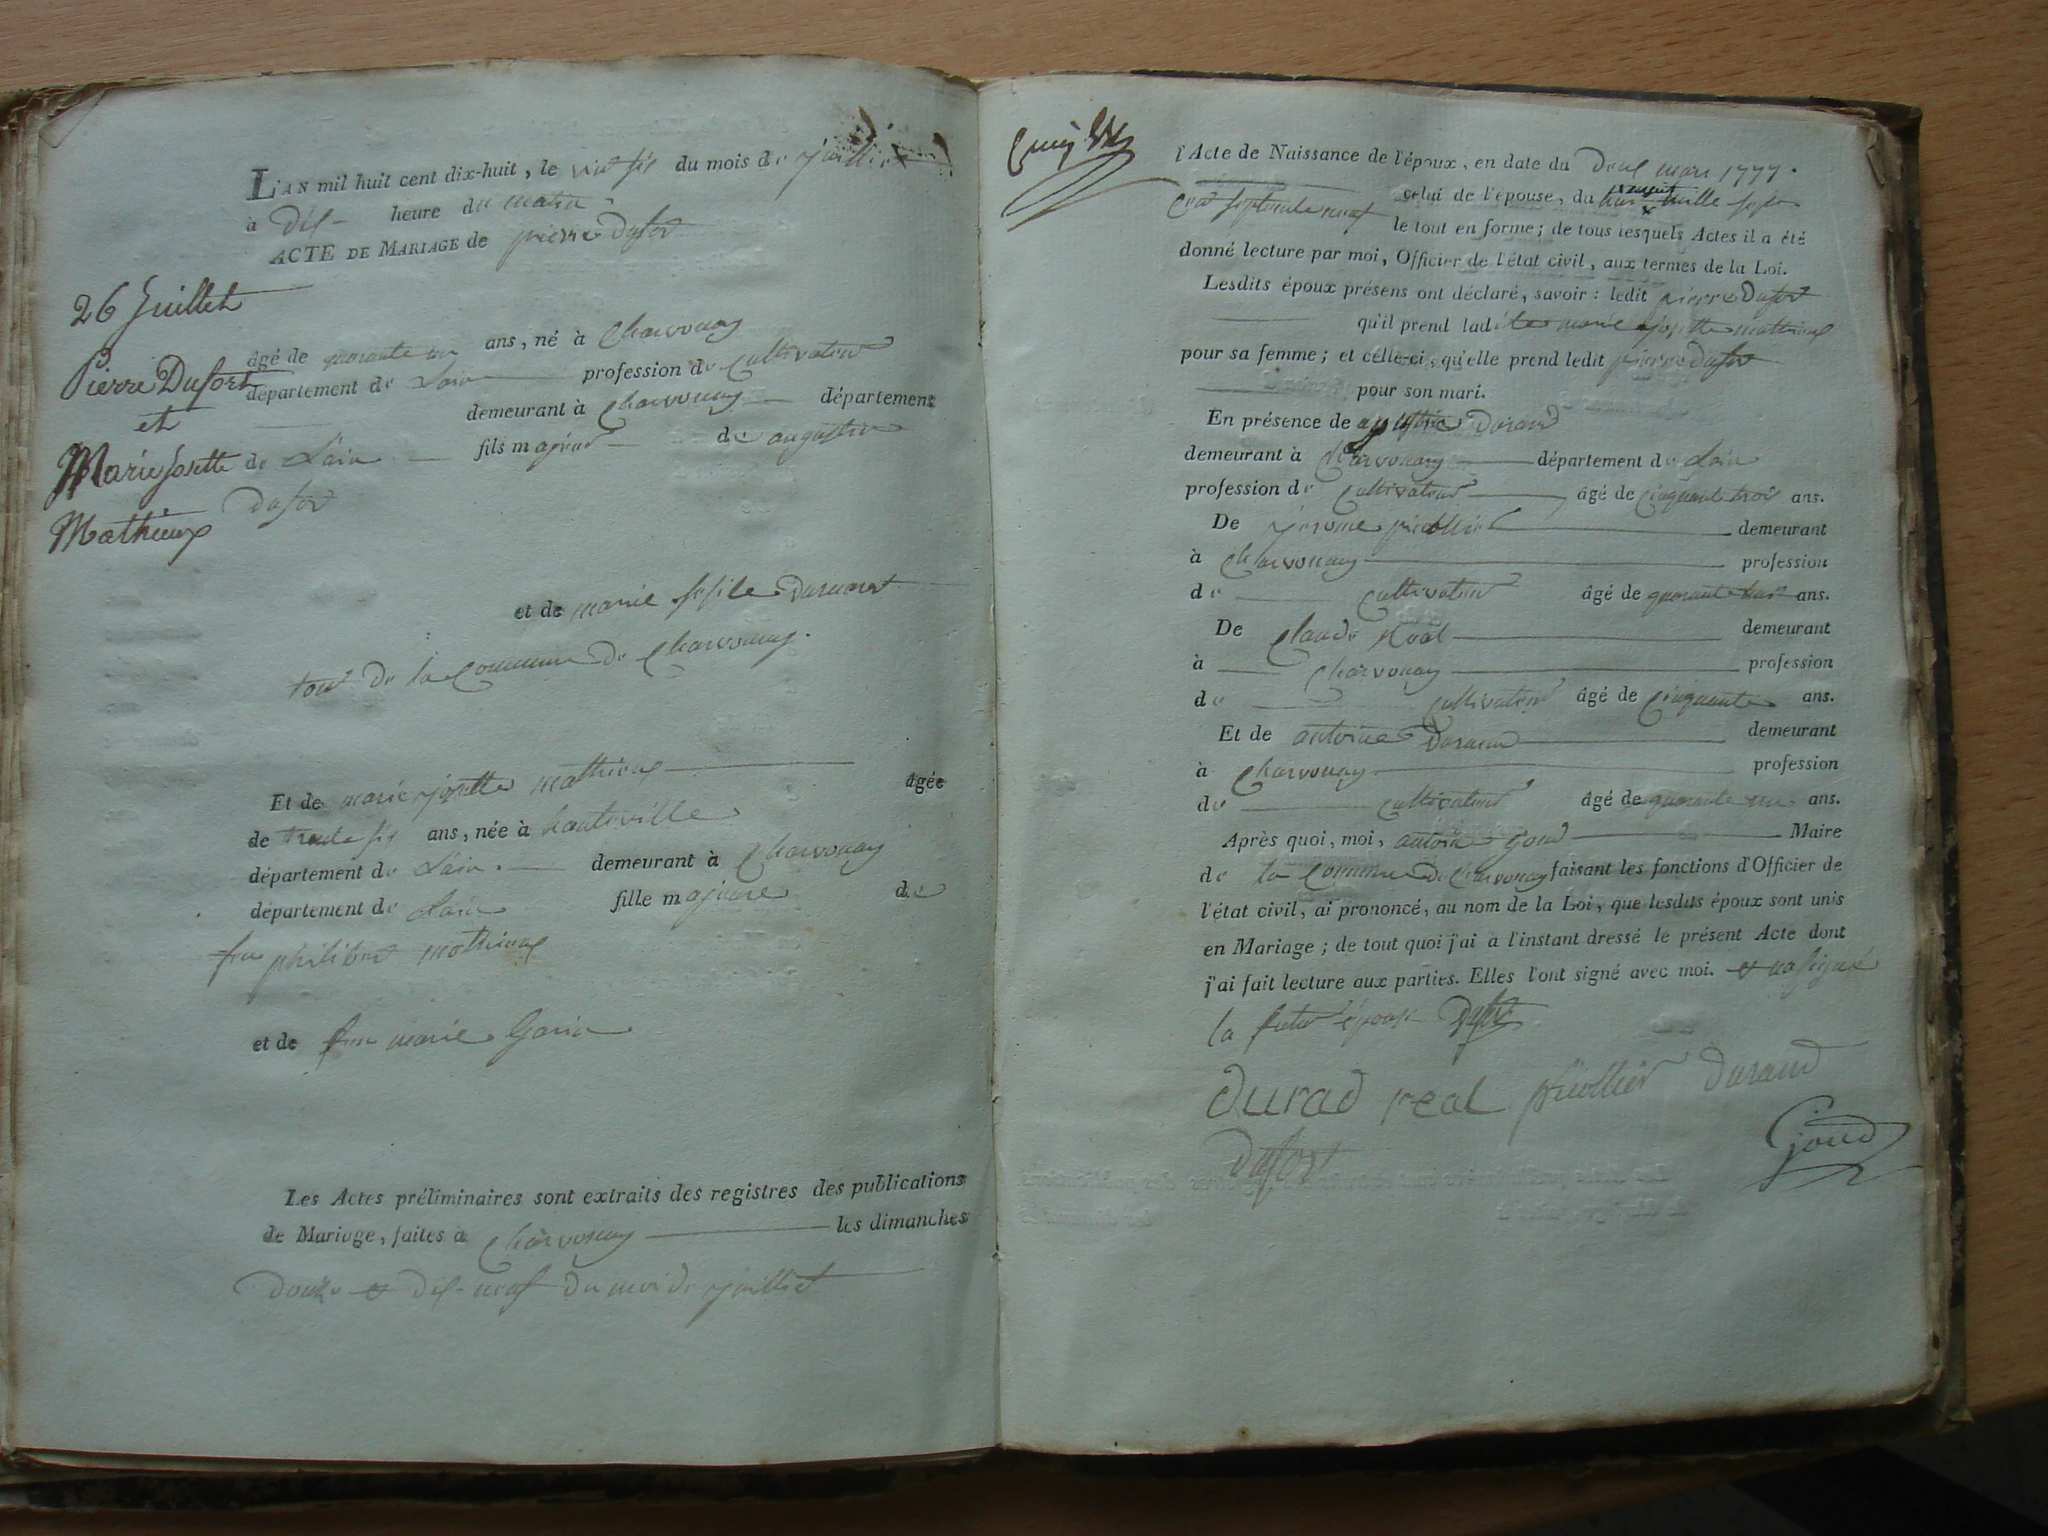 L'AN mil huit cent dix-huit, le vint six du mois de juillet
à dix heure du matin
ACTE DE MARIAGE de pierre Dufort
26 Juillet
Pierre Dufort
et
Marie josette
Mathieux
âgé de quarante un ans, né à Charvonay
département de Lain profession de Cultivateur
demeurant à Charvonay département
de Lain fils majeur de augustin
Dufort
et de marie
tous de la Commune de Charvonay.
Et de marie josette mathieux agée
de trente six ans, née à hauteville
département de Lain. demeurant à Charvonay
département de Lain fille majeure de
feu philibert mathieux
et de feu marie
Les Actes préliminaires sont extraits des registres des publications
de Mariage, faites à Charvonay les dimanches
Douze et dix-neuf du moi de juilliet
l'Acte de Naissance de l'époux, en date du Deux mars 1777.
celui de l'épouse, du mille sept
Cent septente neuf
le tout en forme; de tous lesquels Actes il a été
donné lecture par moi, Officier de l'état civil, aux termes de la Loi.
Lesdits époux présens ont déclaré, savoir : ledit pierre Dufort
qu'il prend ladite marie josette mathieux
pour sa femme; et celle-ci, qu'elle prend ledit pierre Dufort
pour son mari.
En présence de Durand
demeurant à Charvonay département de Lain
profession de Cultivateur âgé de Cinquante trois ans.
De jerome demeurant
à Charvonay profession
de Cultivateur âgé de quarante ans.
De Claude demeurant
à Charvonay profession
de cultivateur âgé de Cinquante ans.
Et de antoine Durand demeurant
à Charvonay profession
de cultivateur âgé de quarante un ans.
Après quoi, moi, antoine Goud Maire
de la Commune de Charvonay faisant les fonctions d'Officier de
l'état civil, ai prononcé, au nom de la Loi, que lesdits époux sont unis
en Mariage; de tout quoi j'ai à l'instant dressé le présent Acte dont
j'ai fait lecture aux parties. Elles l'ont signé avec moi. et na signé
la futur épouse
Durad real Durand
Dufort
Goud